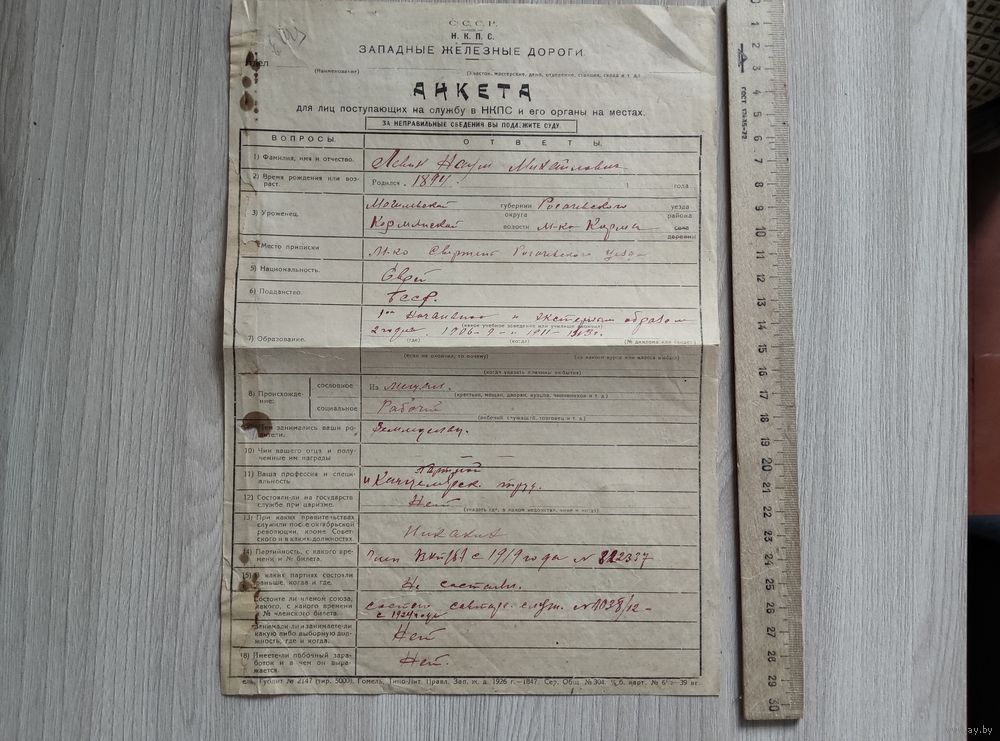 С. С. С. Р.
Н. К. П. С.
ЗАПАДНЫЕ ЖЕЛЕЗНЫЕ ДОРОГИ.
(Наименование) (Участок, мастерские, депо, отделение, станция, склад и т. д.)
АНКЕТА
для лиц поступающих на службу в НКПС и его органы на местах.
ЗА НЕПРАВИЛЬНЫЕ СВЕДЕНИЯ ВЫ ПОДЛЕЖИТЕ СУДУ.
ВОПРОСЫ. ОТВЕТЫ.
1) Фамилия, имя и отчество. Левин Наум Михайлович
2) Время рождения или воз-
раст. Родился 1894. года
Могилевской губернии Рогачевского уезда
3) Уроженец. округа района
Кормянской волости М-ко Корма села
деревни
Место приписки М-ко Рогачевского уезда
5) Национальность. Еврей
6) Подданство. Бсср.
и экстерным образом
(какое учебное заведение или училище окончил)
2 годич. 1906-9 и 1911-1913г.
7) Образование. (где) (когда) (№ диплома или свидет.)
(если не окончил, то почему) (из какого курса или класса выбыл)
(когда указать причины выбытия)
8) Происхожде-
ние: сословное Из мещан.
(крестьян, мещан, дворян, купцов, чиновников и т. д.)
социальное Рабочий
(рабочий, служащий, торговец и т. д.)
Чем занимались ваши ро-
дители. Земледелец.
10) Чин вашего отца и полу-
ченные им награды — —
11) Ваша профессия и специ-
альность Портной
и Канцелярск. труд.
12) Состояли-ли на государств
службе при царизме. Нет
(указать где, в каком ведомстве, чине и когда).
13) При каких правительствах
служили после октябрьской
революции, кроме Совет-
ского и в каких должностях. Никаких
14) Партийность, с какого вре-
мени и № билета. Член ВКП(б) с 1919 года N 822337
15) В каких партиях состояли
раньше, когда и где. Не состоял.
Состоите ли членом союза,
какого, с какого времени
и № членского билета. Состою совторг. служ. N 1038/12-
с 1924 года
Занимали-ли и занимаете-ли
какую либо выборную дол-
жность, где и когда. Нет
18) Имеете-ли побочный зара-
боток и в чем он выра-
жается. Нет.
ель, Гублит № 2147 (тир. 5000). Гомель, Типо-Лит. Правл. Зап. ж. д. 1926 г.—1847. Сер. Общ. № 304.
ГОСТ 17435-72
1 2 3 4 5 6 7 8 9 10 11 12 13 14 15 16 17 18 19 20 21 22 23 24 25 26 27 28 29 30
ay.by